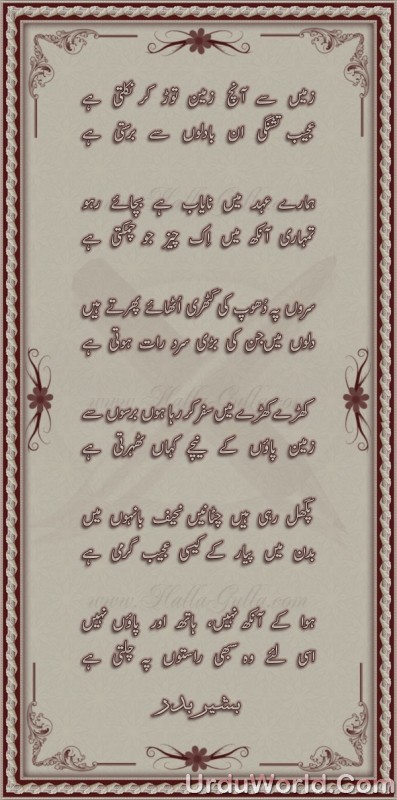 زمیں سے آنچ زمین توڑ کر نکلتی ہے
عجیب تشنگی ان بادلوں سے برستی ہے
ہمارے عہد میں نایاب ہے بچائے رہو
تمہاری آنکھ میں اِک چیز جو چمکتی ہے
سروں پہ دُھوپ کی گٹھری اُٹھائے پھرتے ہیں
دلوں میں جن کی بڑی سرد رات ہوتی ہے
کھڑے کھڑے میں سفر کر رہا ہوں برسوں سے
زمین پاؤں کے نیچے کہاں ٹھہرتی ہے
پگھل رہی ہیں چٹانیں نحیف بانہوں میں
بدن میں پیار کے کیسی عجیب گرمی ہے
ہوا کے آنکھ نہیں، ہاتھ اور پاؤں نہیں
اسی لئے وہ سبھی راستوں پہ چلتی ہے
بشیر بدر
Halla-Gulla
www.Halla-Gulla.com
www.Halla-Gulla.com
UrduWorld.Com